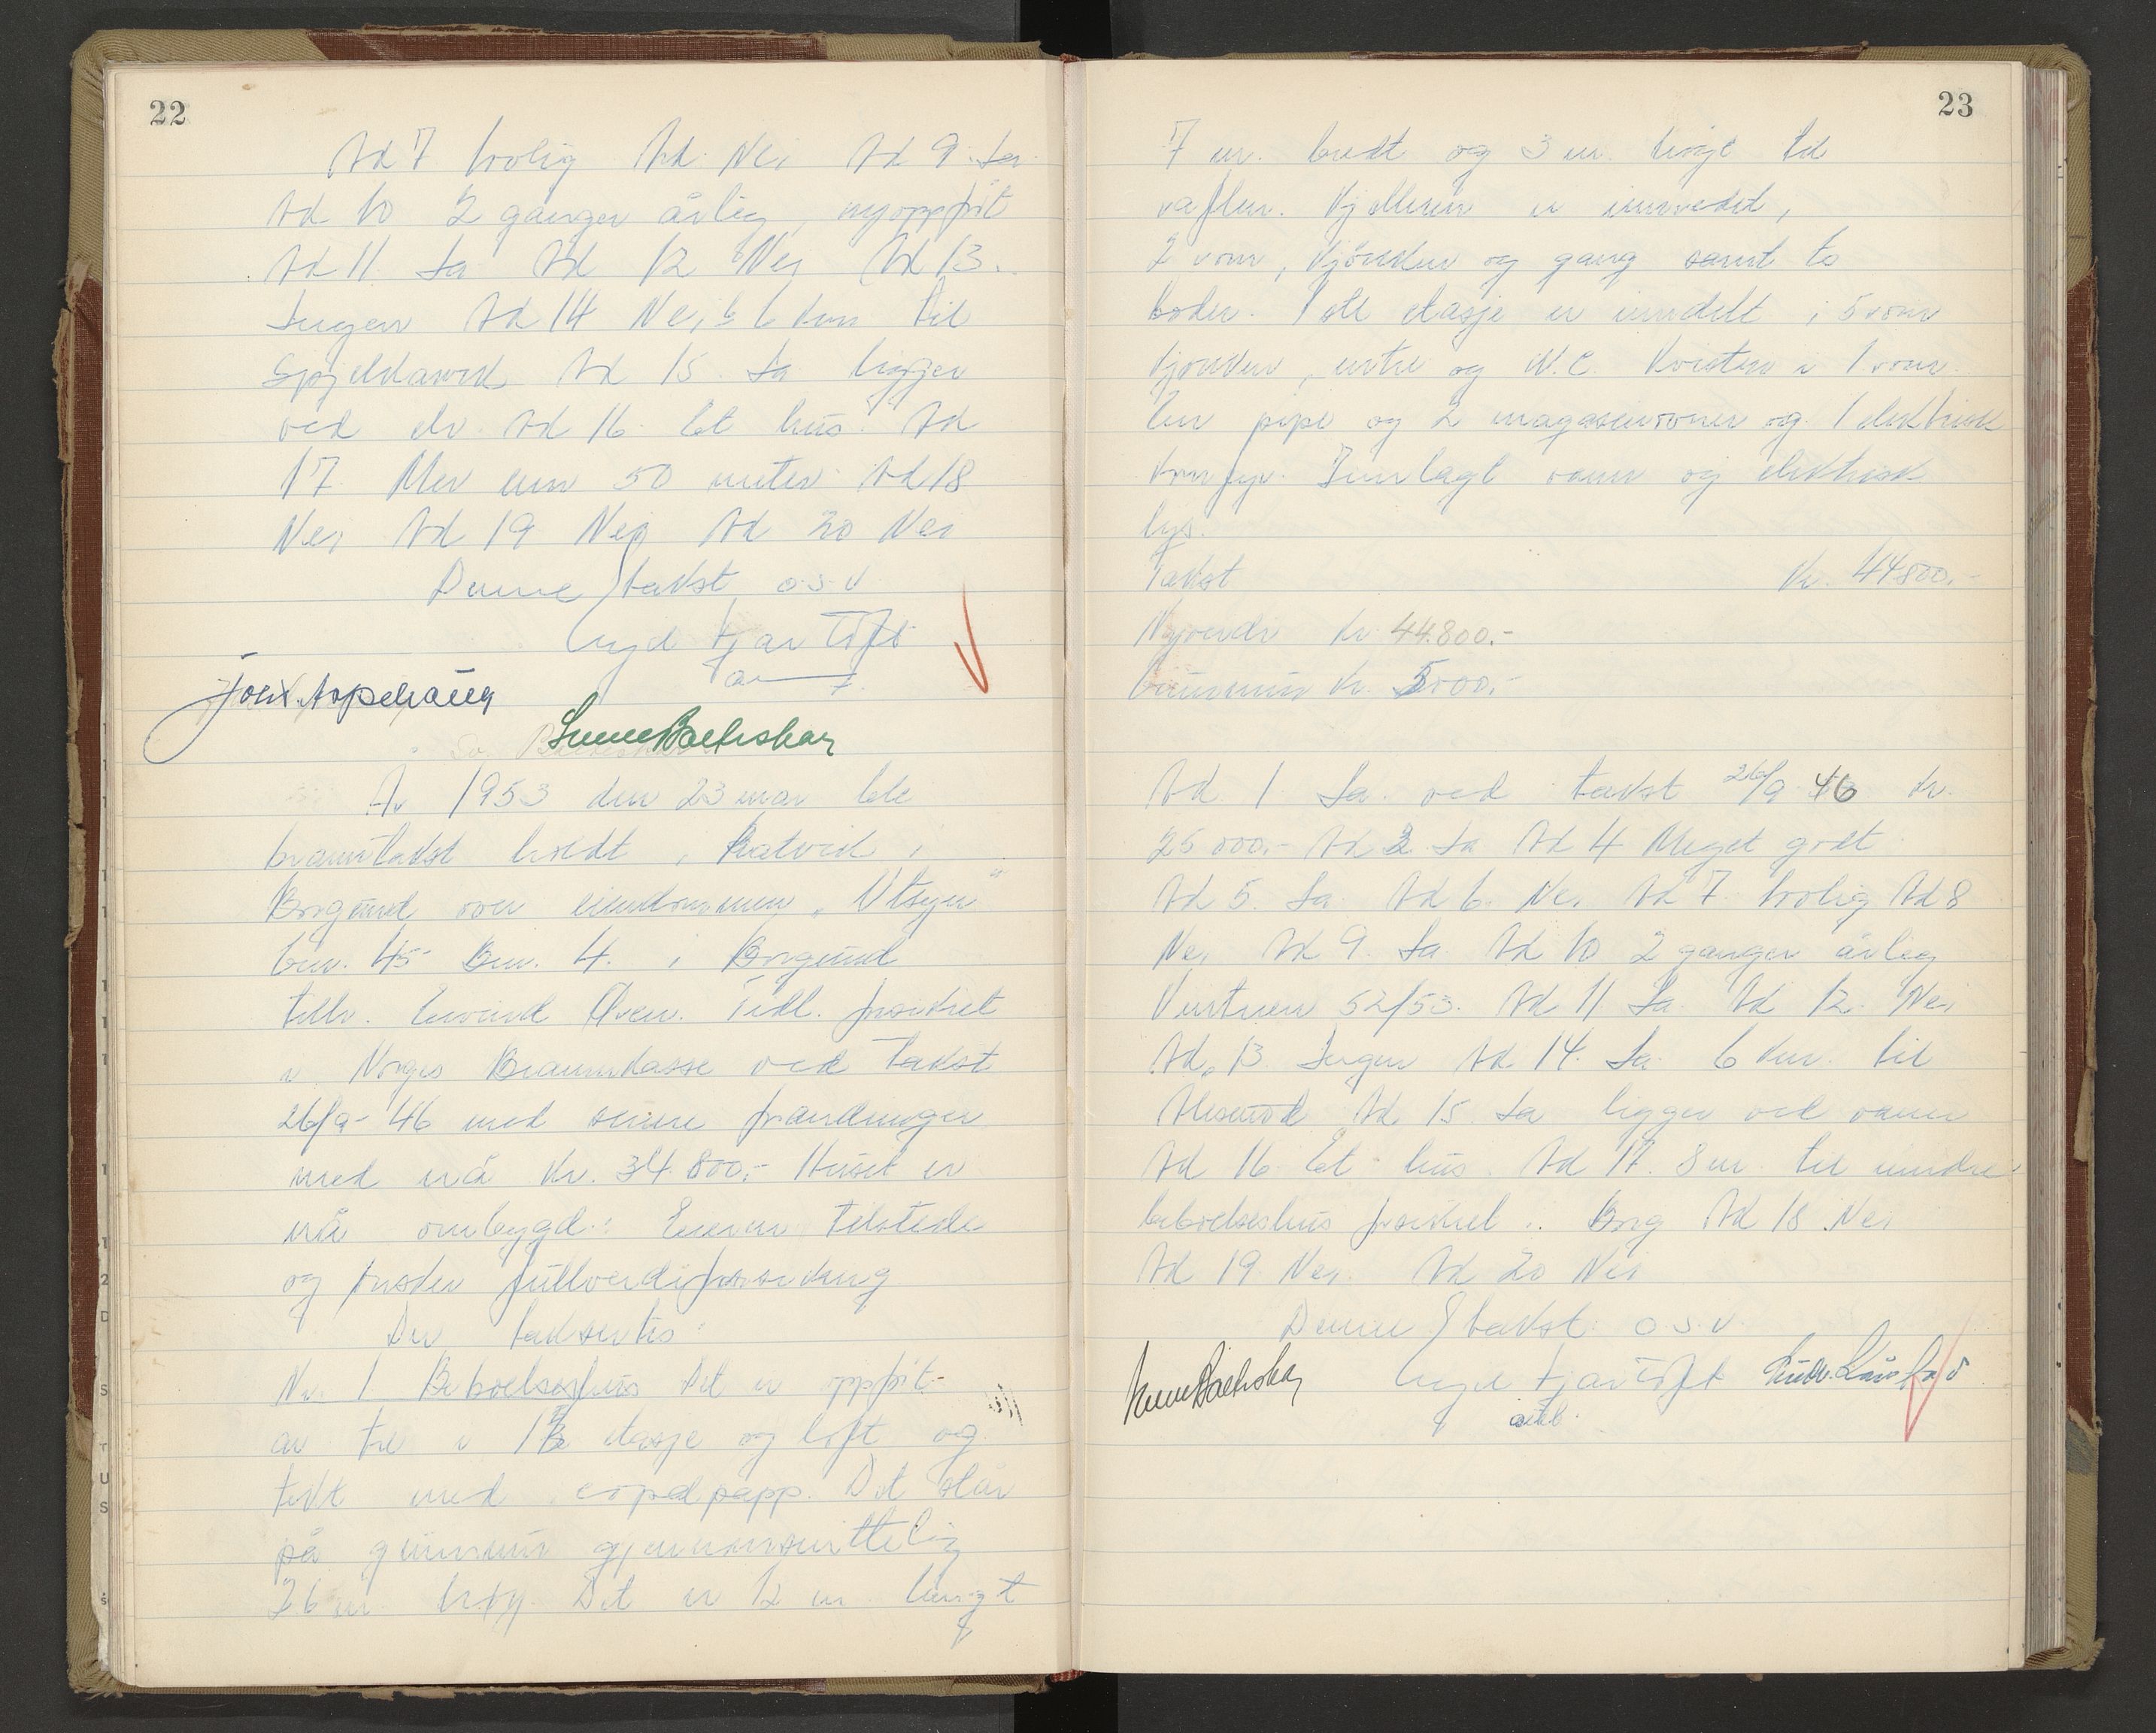 22
Ad 7 bolig Ad Nei Ad 9 Ja
Ad 10 2 ganger årlig, nyoppført
Ad 11 Ja Ad 12 Nei Ad 13.
Ingen Ad 14 Nei 6 km til
Spjelkavik Ad 15 Ja ligger
ved elv Ad 16 Et hus Ad
17 Mer enn 50 meter Ad 18
Nei Ad 19 Nei Ad 20 Nei
Denne takst o.s.v
Fjørtoft
År 1953 den 23 mar ble
branntakst holdt i Ratvik i
Borgund over eiendommen „Utsyn“
Gnr. 45 Bnr. 4. i Borgund
tilh. Eivind Tidl. forsikret
i Norges Brannkasse ved takst
26/9-46 med senere forandringer
med nå Kr. 34.800,- Huset er
nå ombygd. Eieren tilstede
og ønsker fullverdiforsikring
Der takseres:
Nr. 1 Beboelseshus Det er oppført
av tre i 1 etasje og loft og
tekt med papp. Det står
på grunnmur gjennomsnittelig
2 6 m høy Det er 12 m langt
23
7 m. bredt og 3 m høgt til
raften. Kjelleren er innredet,
2 rom, kjøkken og gang samt to
boder. 1ste etasje er inndelt i 5 rom
kjøkken, entre og W.C. Kvisten i 1 rom
En pipe og 2 magasinovner og 1 elektrisk
komfyr. Innlagt vann og elektrisk
lys.
Takst Kr. 44800.-
Nyverdi Kr 44.800.-
Grunnmur Kr. 5000.-
Ad 1 Ja ved takst 26/9 46 Kr.
25000.- Ad 2 Ja Ad 4 Meget godt
Ad 5. Ja Ad 6. Nei Ad 7 bolig Ad 8
Nei Ad 9. Ja Ad 10 2 ganger årleg
Vinteren 52/53. Ad 11 Ja Ad 12. Nei
Ad 13 Ingen Ad 14. Ja 6 km. til
Ålesund Ad 15 Ja ligger ved vann
Ad 16 Et hus. Ad 17. 8 m til mindre
beboelseshus forsikret i Brg Ad 18 Nei
Ad 19 Nei. Ad 20 Nei
Denne takst o.s.v.
Fjørtoft